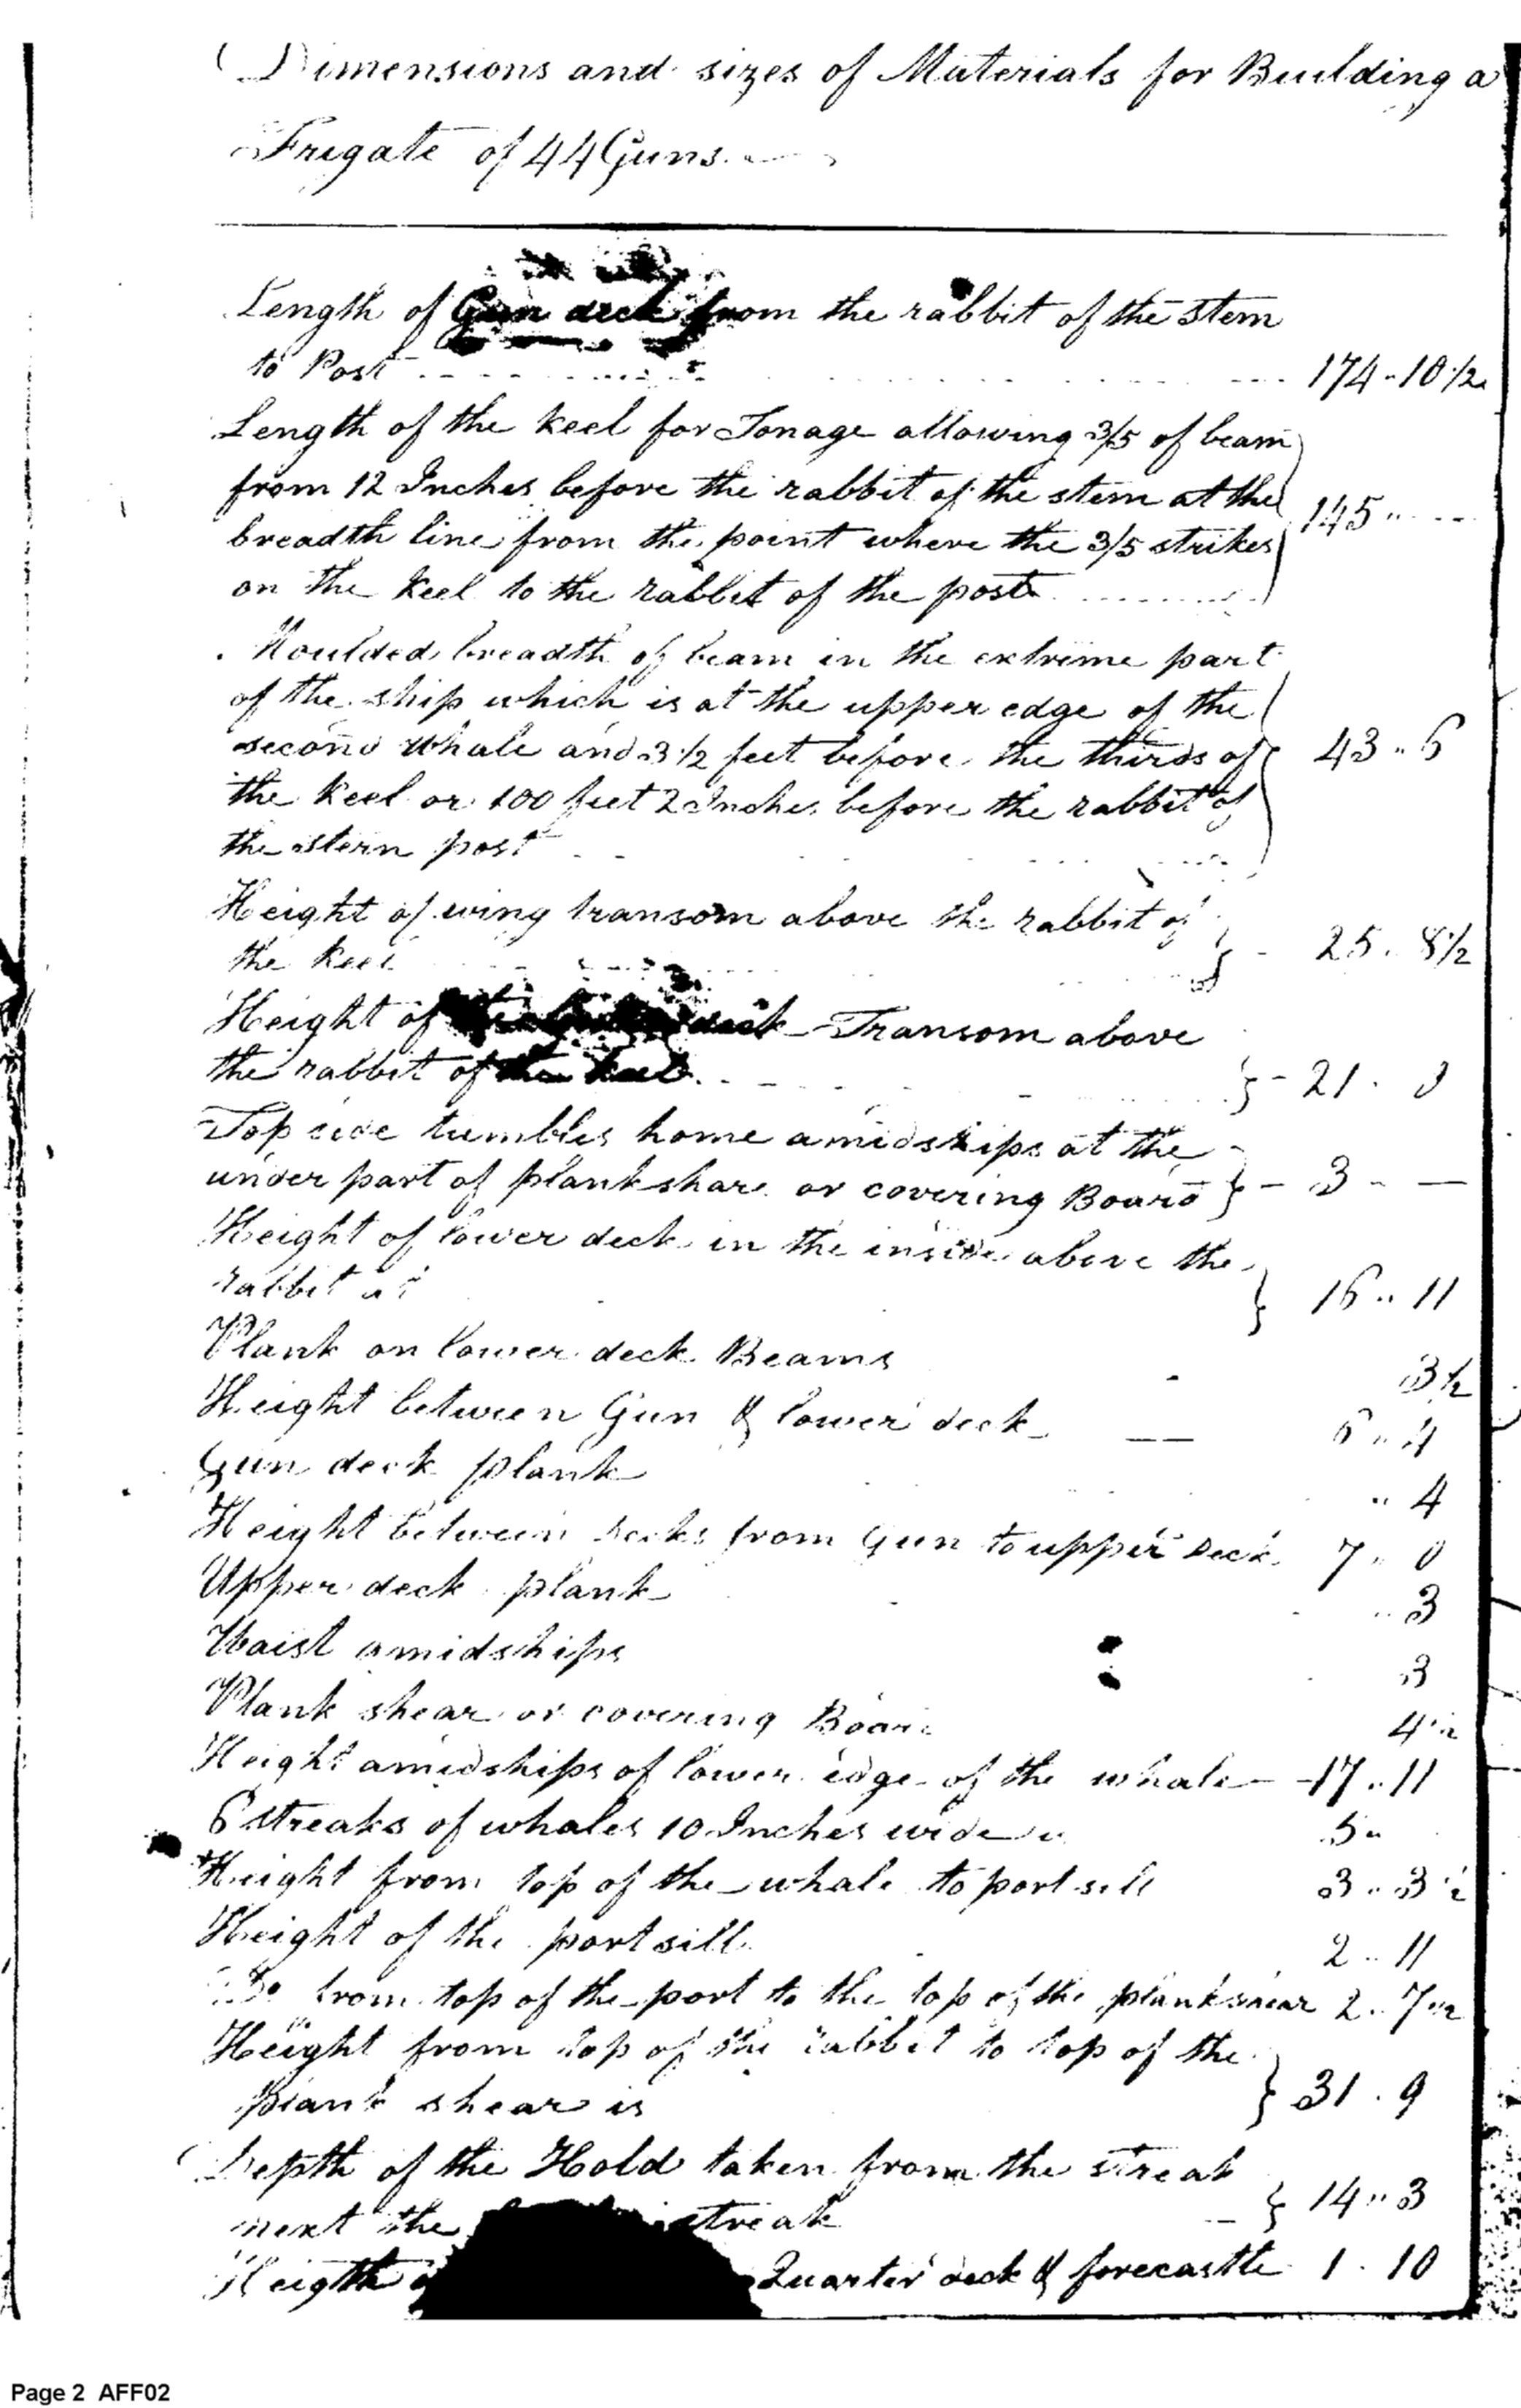 Dimensions and sizes of Materials for Building a
Frigate of 44 Guns.
Length of Gun deck from the rabbit of the stem
to Post 174 " 10 1/2
Length of the keel for Tonage allowing 3/5 of beam
from 12 Inches before the rabbit of the stem at the
breadth line from the point where the 3/5 strikes 145 "
on the keel to the rabbit of the post
Moulded breadth of beam in the extrime part
of the ship which is at the upper edge of the
second Whale and 3 1/2 feet before the thirds of 43 " 6
the keel or 100 feet 2 Inches before the rabbit of
the stern post
Height of wing transom above the rabbit of
the keel 25 " 8 1/2
Height of deck Transom above
the rabbit of the keel 21
Top side tumbles home amidships at the
under part of plankshare or covering Board 3 " —
Height of lower deck in the inside above the
rabbit 16 " 11
Plank on lower deck Beams 3 1/2
Height between Gun & lower deck 6 " 4
Gun deck plank " 4
Height between decks from Gun to upper deck 7 " 0
Upper deck plank " 3
Waist amidships 3
Plank shear or covering Board 4 1/2
Height amidships of lower edge of the whale 17 " 11
6 streaks of whales 10 Inches wide 5 "
Height from top of the whale to port sill 3 " 3 1/2
Height of the port sill 2 " 11
Do from top of the port to the top of the plankshear 2 " 7 1/2
Height from top of the rabbit to top of the
plank shear is 31 " 9
Depth of the Hold taken from the streak
next the streak 14 " 3
Heigth Quarter deck & forecastle 1 " 10
Page 2 AFF02